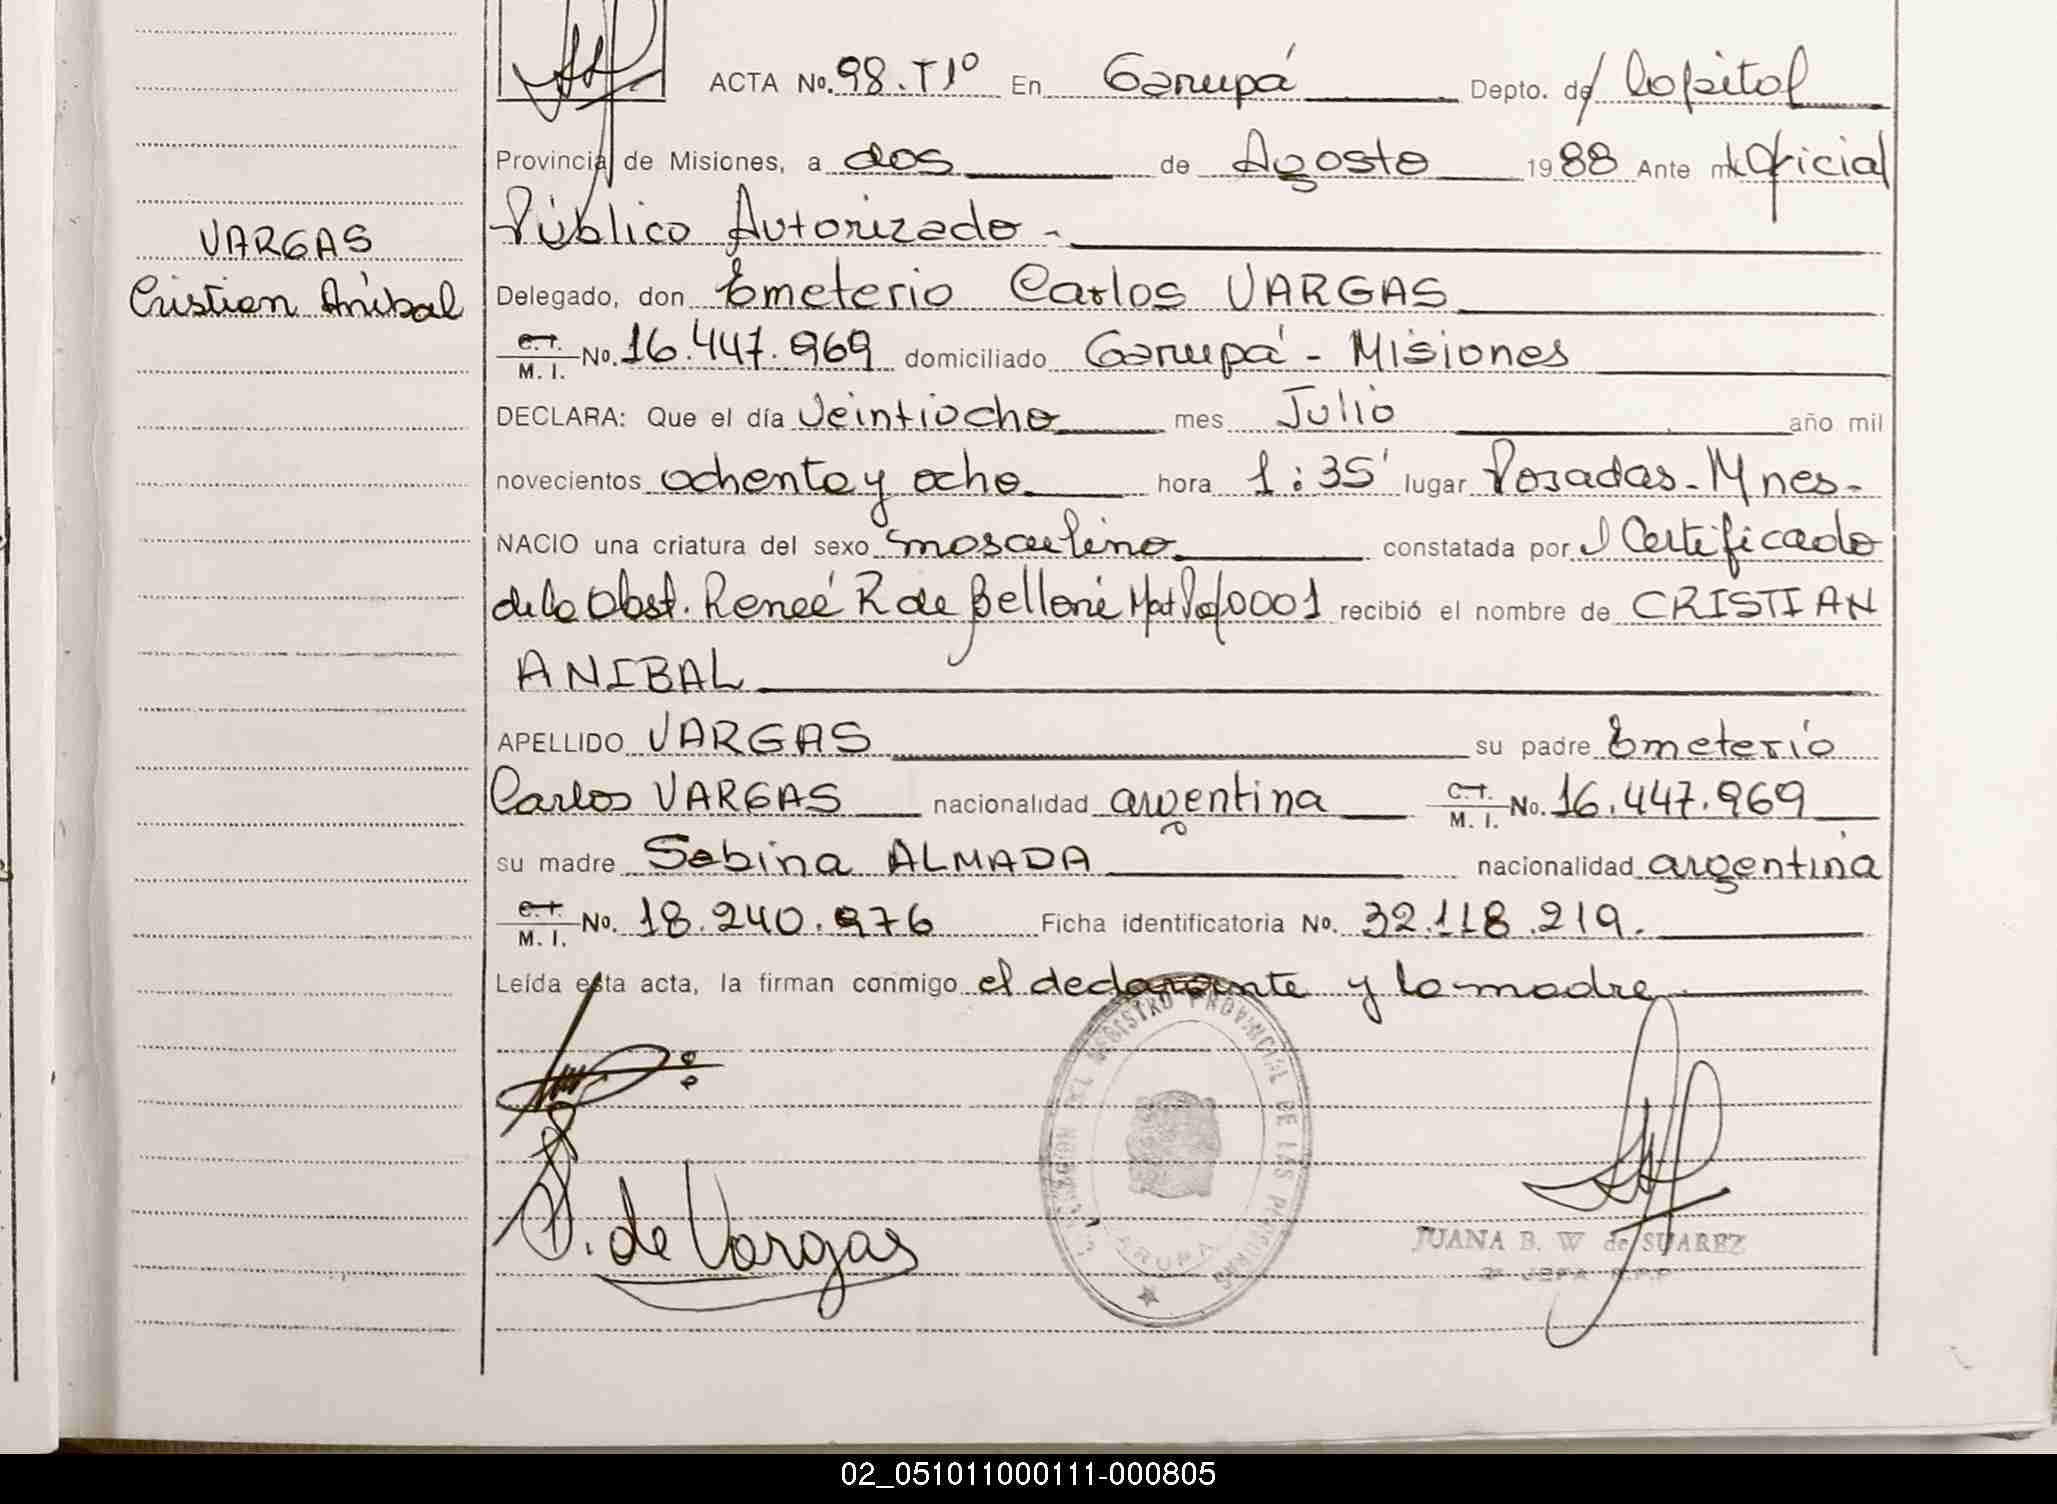 ACTA No. 98. T1º En Garupá Depto. de Capital
Provincia de Misiones, a dos de Agosto 1988 Ante mi Oficial
Público Autorizado -
VARGAS
Cristian Aníbal
Delegado, don Emeterio Carlos VARGAS
C.I. M. I. No. 16.447.969 domiciliado Garupá - Misiones
DECLARA: Que el día Veintiocho mes Julio año mil
novecientos ochenta y ocho hora 1:35' lugar Posadas - Mnes -
NACIO una criatura del sexo masculino constatada por el Certificado
de la Obst. Reneé R de Belloni Mat 0001 recibió el nombre de CRISTIAN
ANIBAL
APELLIDO VARGAS su padre Emeterio
Carlos VARGAS nacionalidad argentina C.I. M. I. No. 16.447.969
su madre Sabina ALMADA nacionalidad argentina
C.I. M. I. No. 18.240.976 Ficha identificatoria No. 32.118.219.
Leída esta acta, la firman conmigo el declarante y la madre
DEL REGISTRO PROVINCIAL DE LAS PERSONAS
GARUPA
S. de Vargas
JUANA B. W de SUAREZ
JEFA R.P.P
02_051011000111-000805